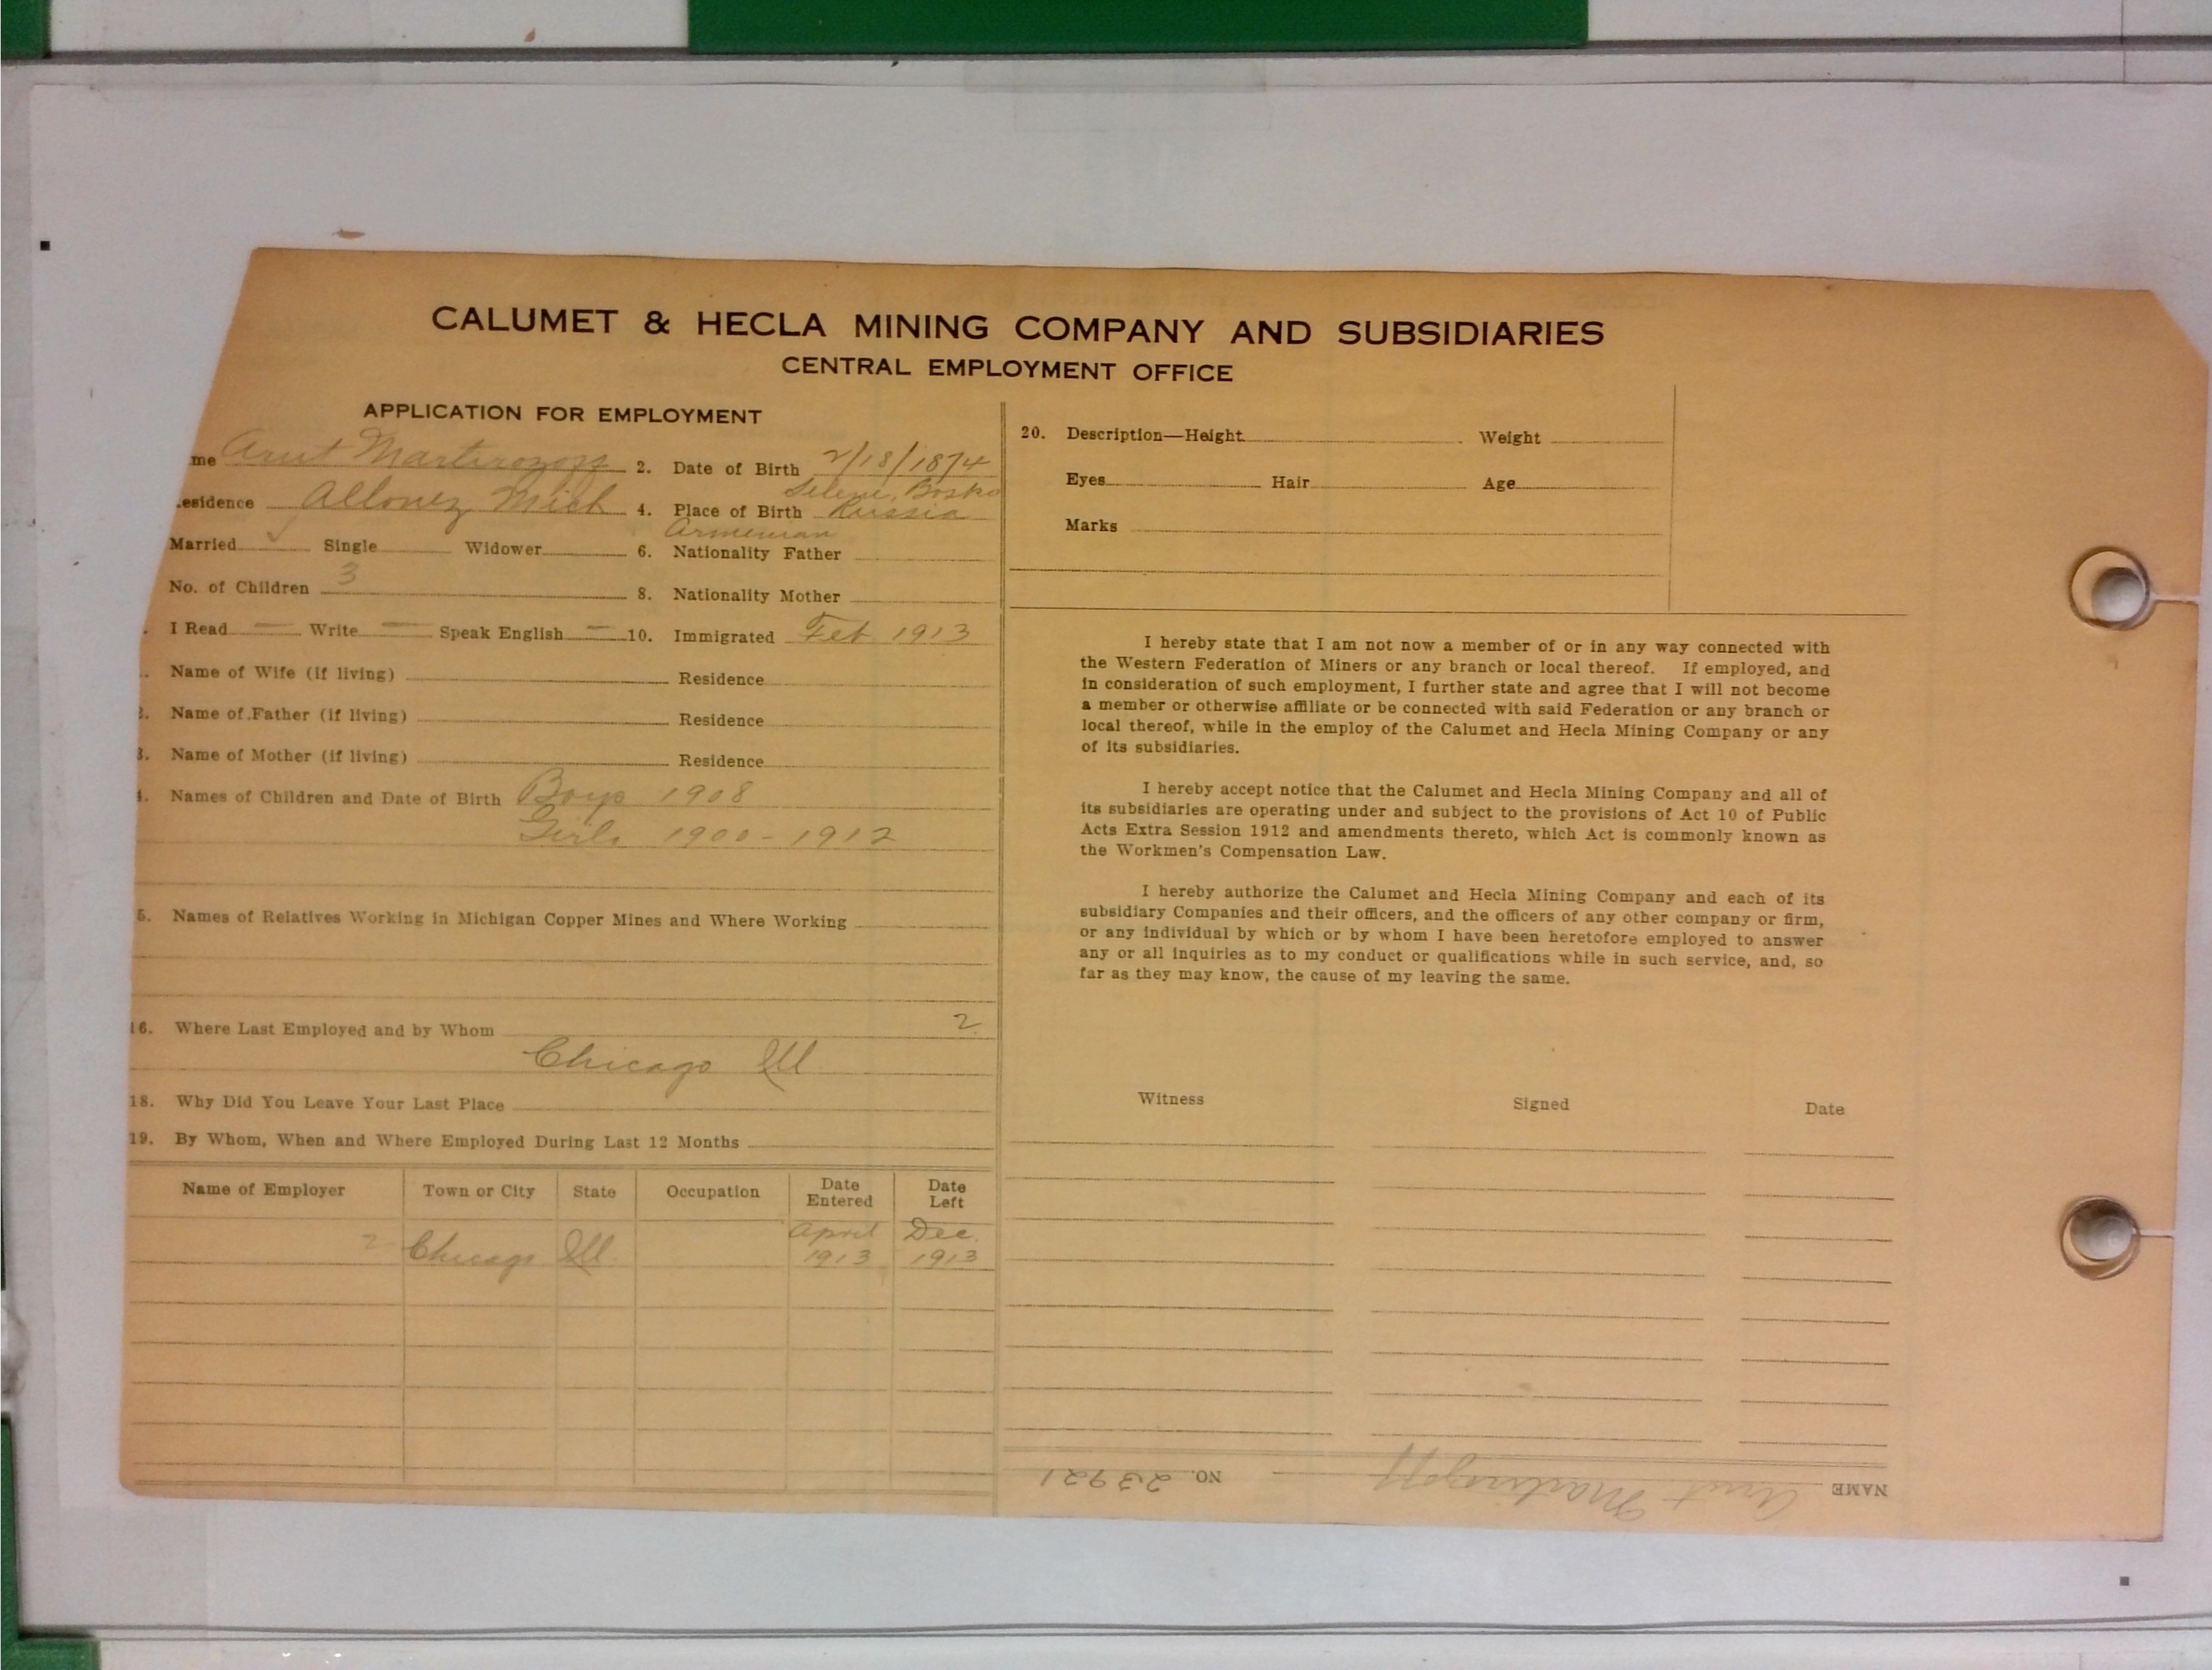 CALUMET & HECLA MINING COMPANY AND SUBSIDIARIES
CENTRAL EMPLOYMENT OFFICE
APPLICATION FOR EMPLOYMENT
me Arut Martirozoff 2. Date of Birth 2/18/1874
esidence Allouez Mich 4. Place of Birth Russia
Married ✓ Single Widower 6. Nationality Father Armenian
No. of Children 3 8. Nationality Mother
. I Read — Write — Speak English — 10. Immigrated Feb 1913
. Name of Wife (if living) Residence
2. Name of Father (if living) Residence
3. Name of Mother (if living) Residence
4. Names of Children and Date of Birth Boys 1908
Girls 1900 - 1912
5. Names of Relatives Working in Michigan Copper Mines and Where Working
16. Where Last Employed and by Whom 2
Chicago Ill.
18. Why Did You Leave Your Last Place
19. By Whom, When and Where Employed During Last 12 Months
Name of Employer Town or City State Occupation Date Entered Date Left
2 Chicago Ill. April 1913 Dec. 1913
20. Description—Height Weight
Eyes Hair Age
Marks
I hereby state that I am not now a member of or in any way connected with
the Western Federation of Miners or any branch or local thereof. If employed, and
in consideration of such employment, I further state and agree that I will not become
a member or otherwise affiliate or be connected with said Federation or any branch or
local thereof, while in the employ of the Calumet and Hecla Mining Company or any
of its subsidiaries.
I hereby accept notice that the Calumet and Hecla Mining Company and all of
its subsidiaries are operating under and subject to the provisions of Act 10 of Public
Acts Extra Session 1912 and amendments thereto, which Act is commonly known as
the Workmen's Compensation Law.
I hereby authorize the Calumet and Hecla Mining Company and each of its
subsidiary Companies and their officers, and the officers of any other company or firm,
or any individual by which or by whom I have been heretofore employed to answer
any or all inquiries as to my conduct or qualifications while in such service, and, so
far as they may know, the cause of my leaving the same.
Witness Signed Date
NAME Arut Martirozoff NO. 23921